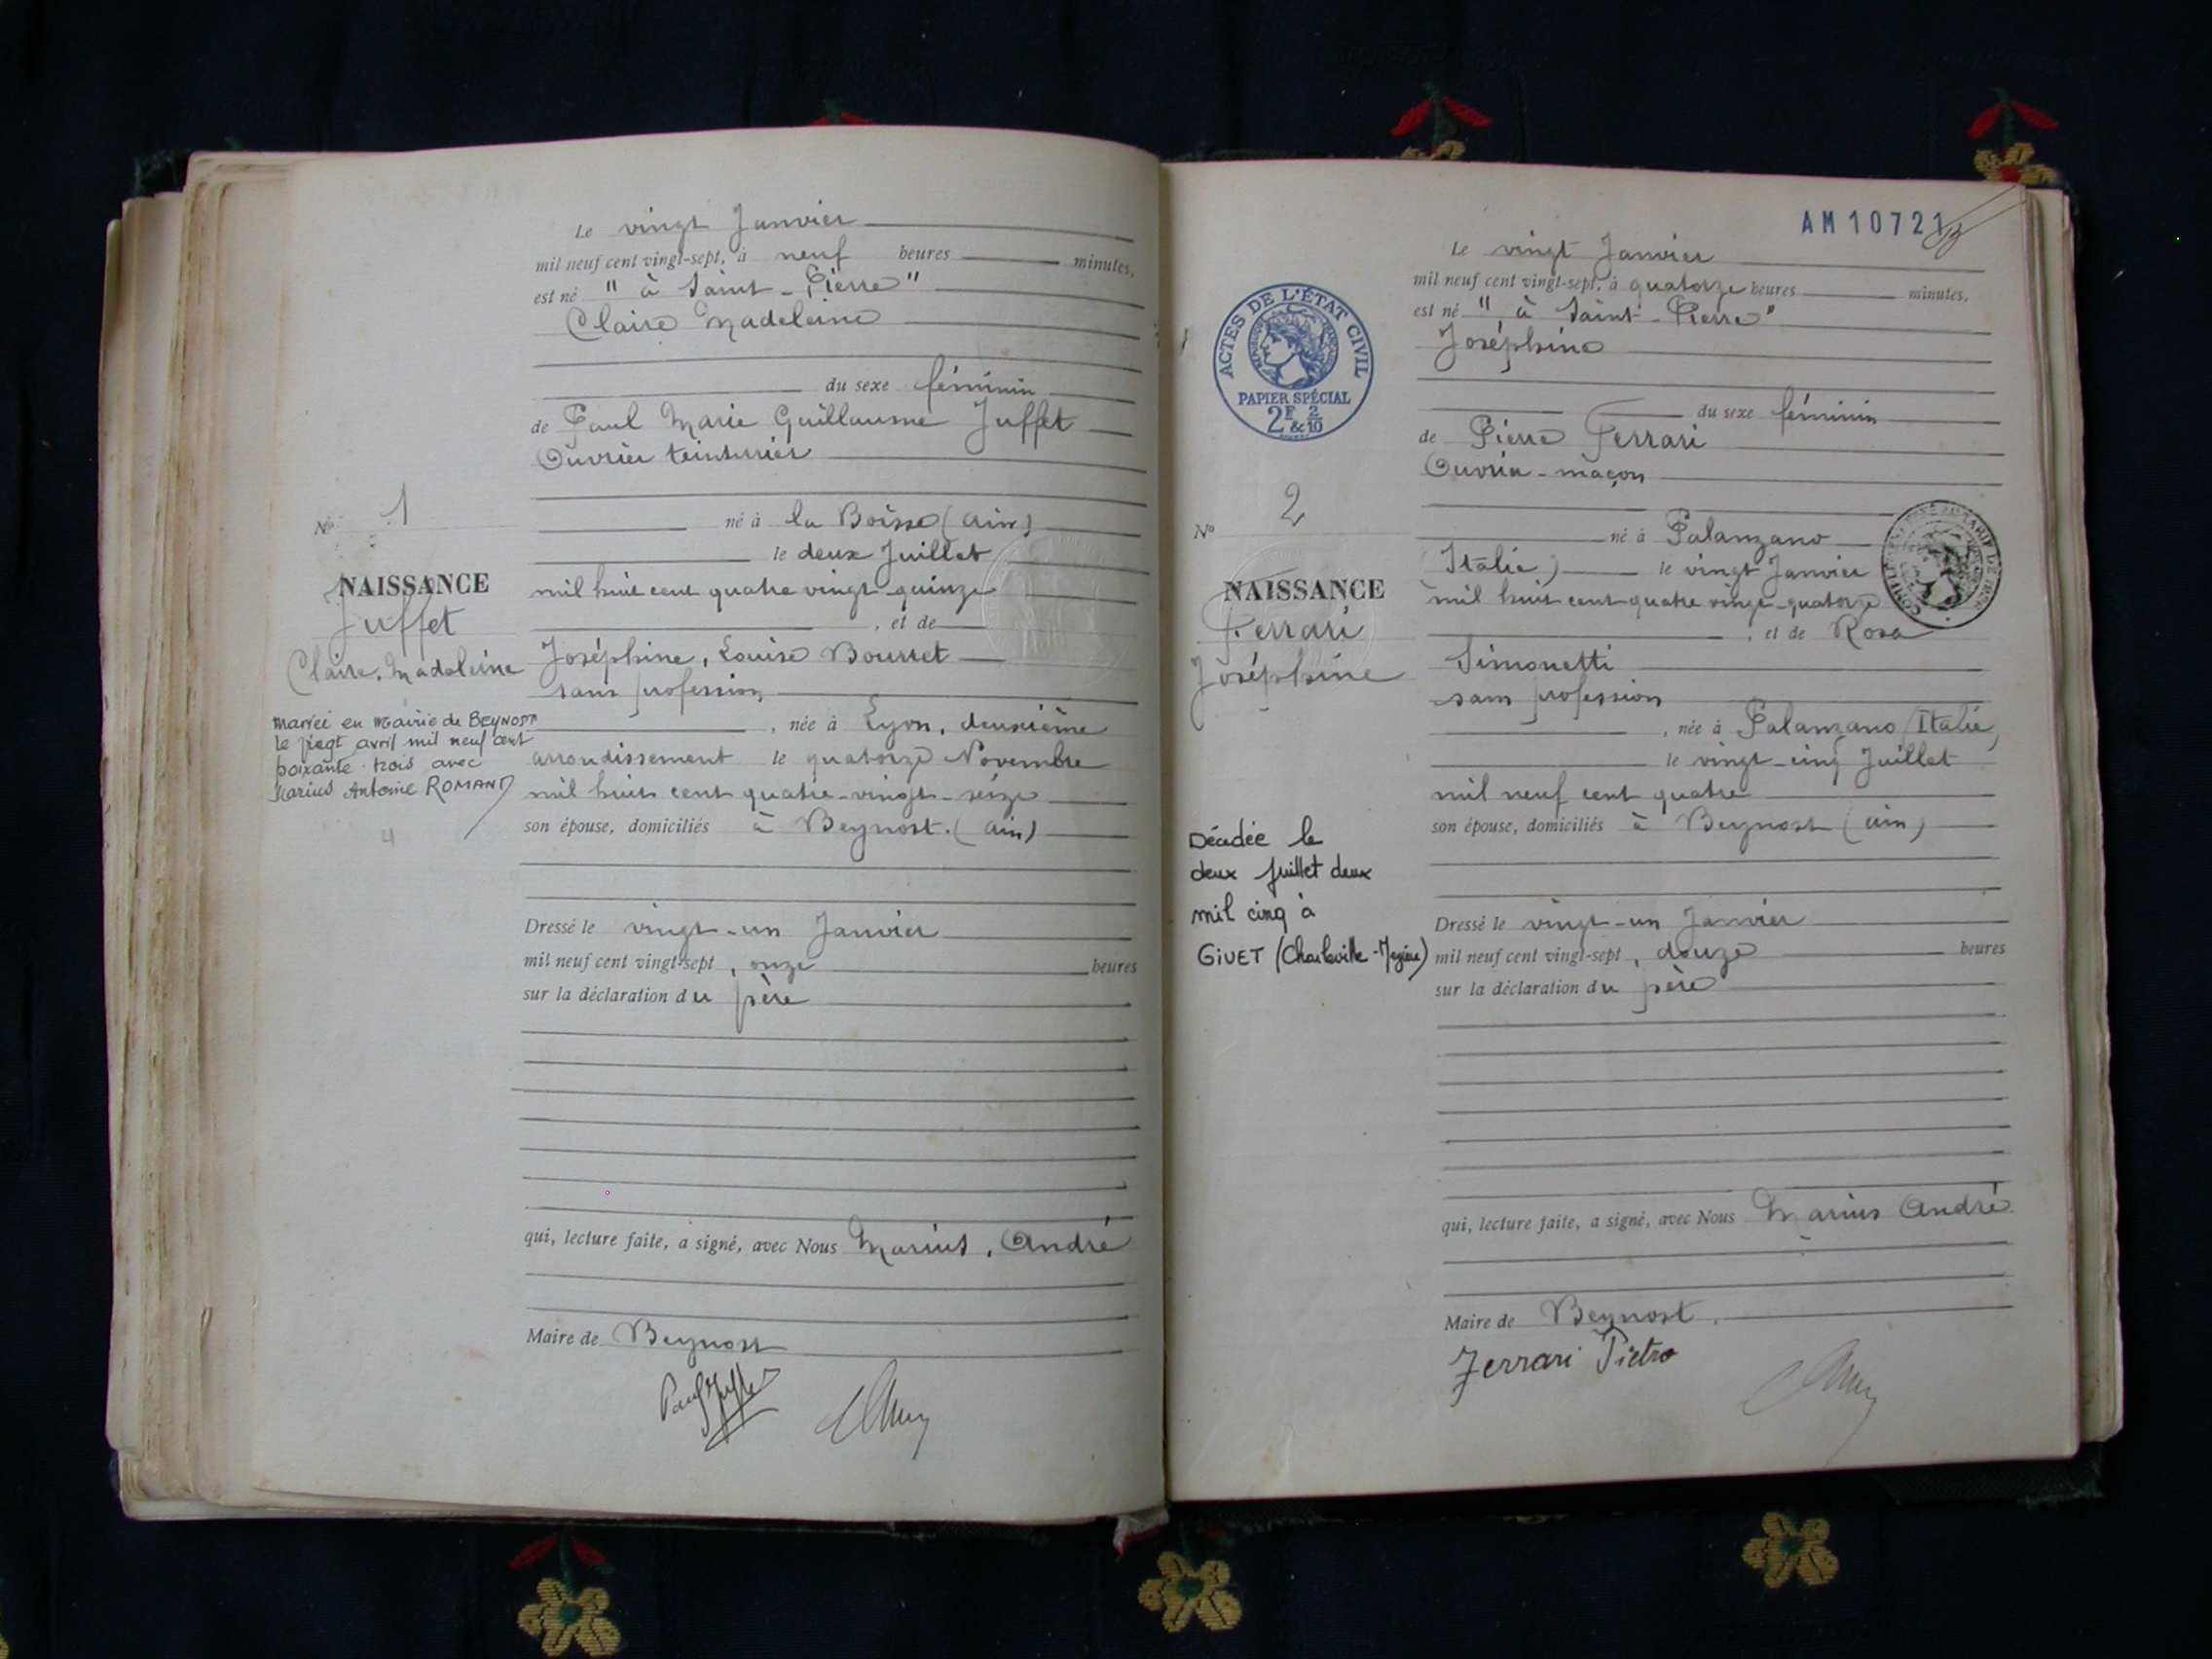 Le vingt Janvier
mil neuf cent vingt-sept, à neuf heures minutes,
est né "à Saint-Pierre"
Claire Madeleine
du sexe féminin
de Paul Marie Guillaume Juffet
Ouvrier teinturier
né à la Boisse (Ain)
le deux Juillet
mil huit cent quatre vingt-quinze
, et de
Joséphine, Louise Bourret
sans profession
, née à Lyon, deuxième
arrondissement le quatorze Novembre
mil huit cent quatre-vingt-seize
son épouse, domiciliés à Beynost. (Ain)
Dressé le vingt-un Janvier
mil neuf cent vingt-sept, onze heures
sur la déclaration du père
qui, lecture faite, a signé, avec Nous Marius, André
Maire de Beynost
Nº 1
NAISSANCE
Juffet
Claire, Madeleine
Mariée en Mairie de BEYNOST
le vingt avril mil neuf cent
soixante-trois avec
Marius Antoine ROMAND
4
AM10721
Le vingt Janvier
mil neuf cent vingt-sept, à quatorze heures minutes,
est né "à Saint-Pierre"
Joséphine
du sexe féminin
de Pierre Ferrari
Ouvrier-maçon
né à Palanzano
Italie) le vingt Janvier
mil huit cent quatre vingt-quatorze
, et de Rosa
Simonetti
sans profession
, née à Palanzano (Italie)
le vingt-cinq Juillet
mil neuf cent quatre
son épouse, domiciliés à Beynost (Ain)
Dressé le vingt-un Janvier
mil neuf cent vingt-sept, douze heures
sur la déclaration du père
qui, lecture faite, a signé, avec Nous Marius André
Maire de Beynost.
Ferrari Pietro
ACTES DE L'ÉTAT CIVIL
PAPIER SPÉCIAL
2F & 2/10
Nº 2
NAISSANCE
Ferrari
Joséphine
Décédée le
deux juillet deux
mil cinq à
GIVET (Charleville-Mézières)